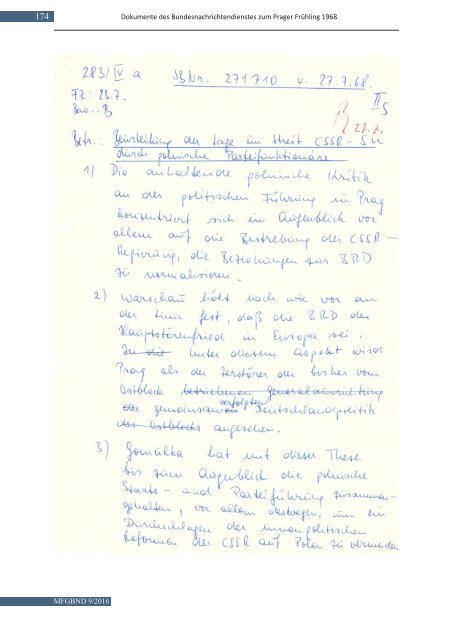 174
Dokumente des Bundesnachrichtendienstes zum Prager Frühling 1968
283/IV a SBNr. 271710 v. 27.7.68.
FZ: 23.7.
Bew.: B
II S
27.7.
Betr.: Beurteilung der Lage im Streit CSSR - SU
durch polnische Parteifunktionäre
1) Die anhaltende polnische Kritik
an der politischen Führung in Prag
konzentriert sich im Augenblick vor
allem auf die Bestrebung der CSSR-
Regierung, die Beziehungen zur BRD
zu normalisieren.
2) Warschau hält nach wie vor an
der Linie fest, daß die BRD der
Hauptstörenfried in Europa sei.
In die Unter diesem Aspekt wird
Prag als der Zerstörer der bisher vom
Ostblock betriebenen Generalausrichtung
verfolgten
der gemeinsamen Deutschlandpolitik
des Ostblocks angesehen.
3) Gomulka hat mit dieser These
bis zum Augenblick die polnische
Staats- und Parteiführung zusammen-
gehalten, vor allem deswegen, um ein
Durchschlagen der innenpolitischen
Reformen der CSSR auf Polen zu vermeiden
MFGBND 9/2016